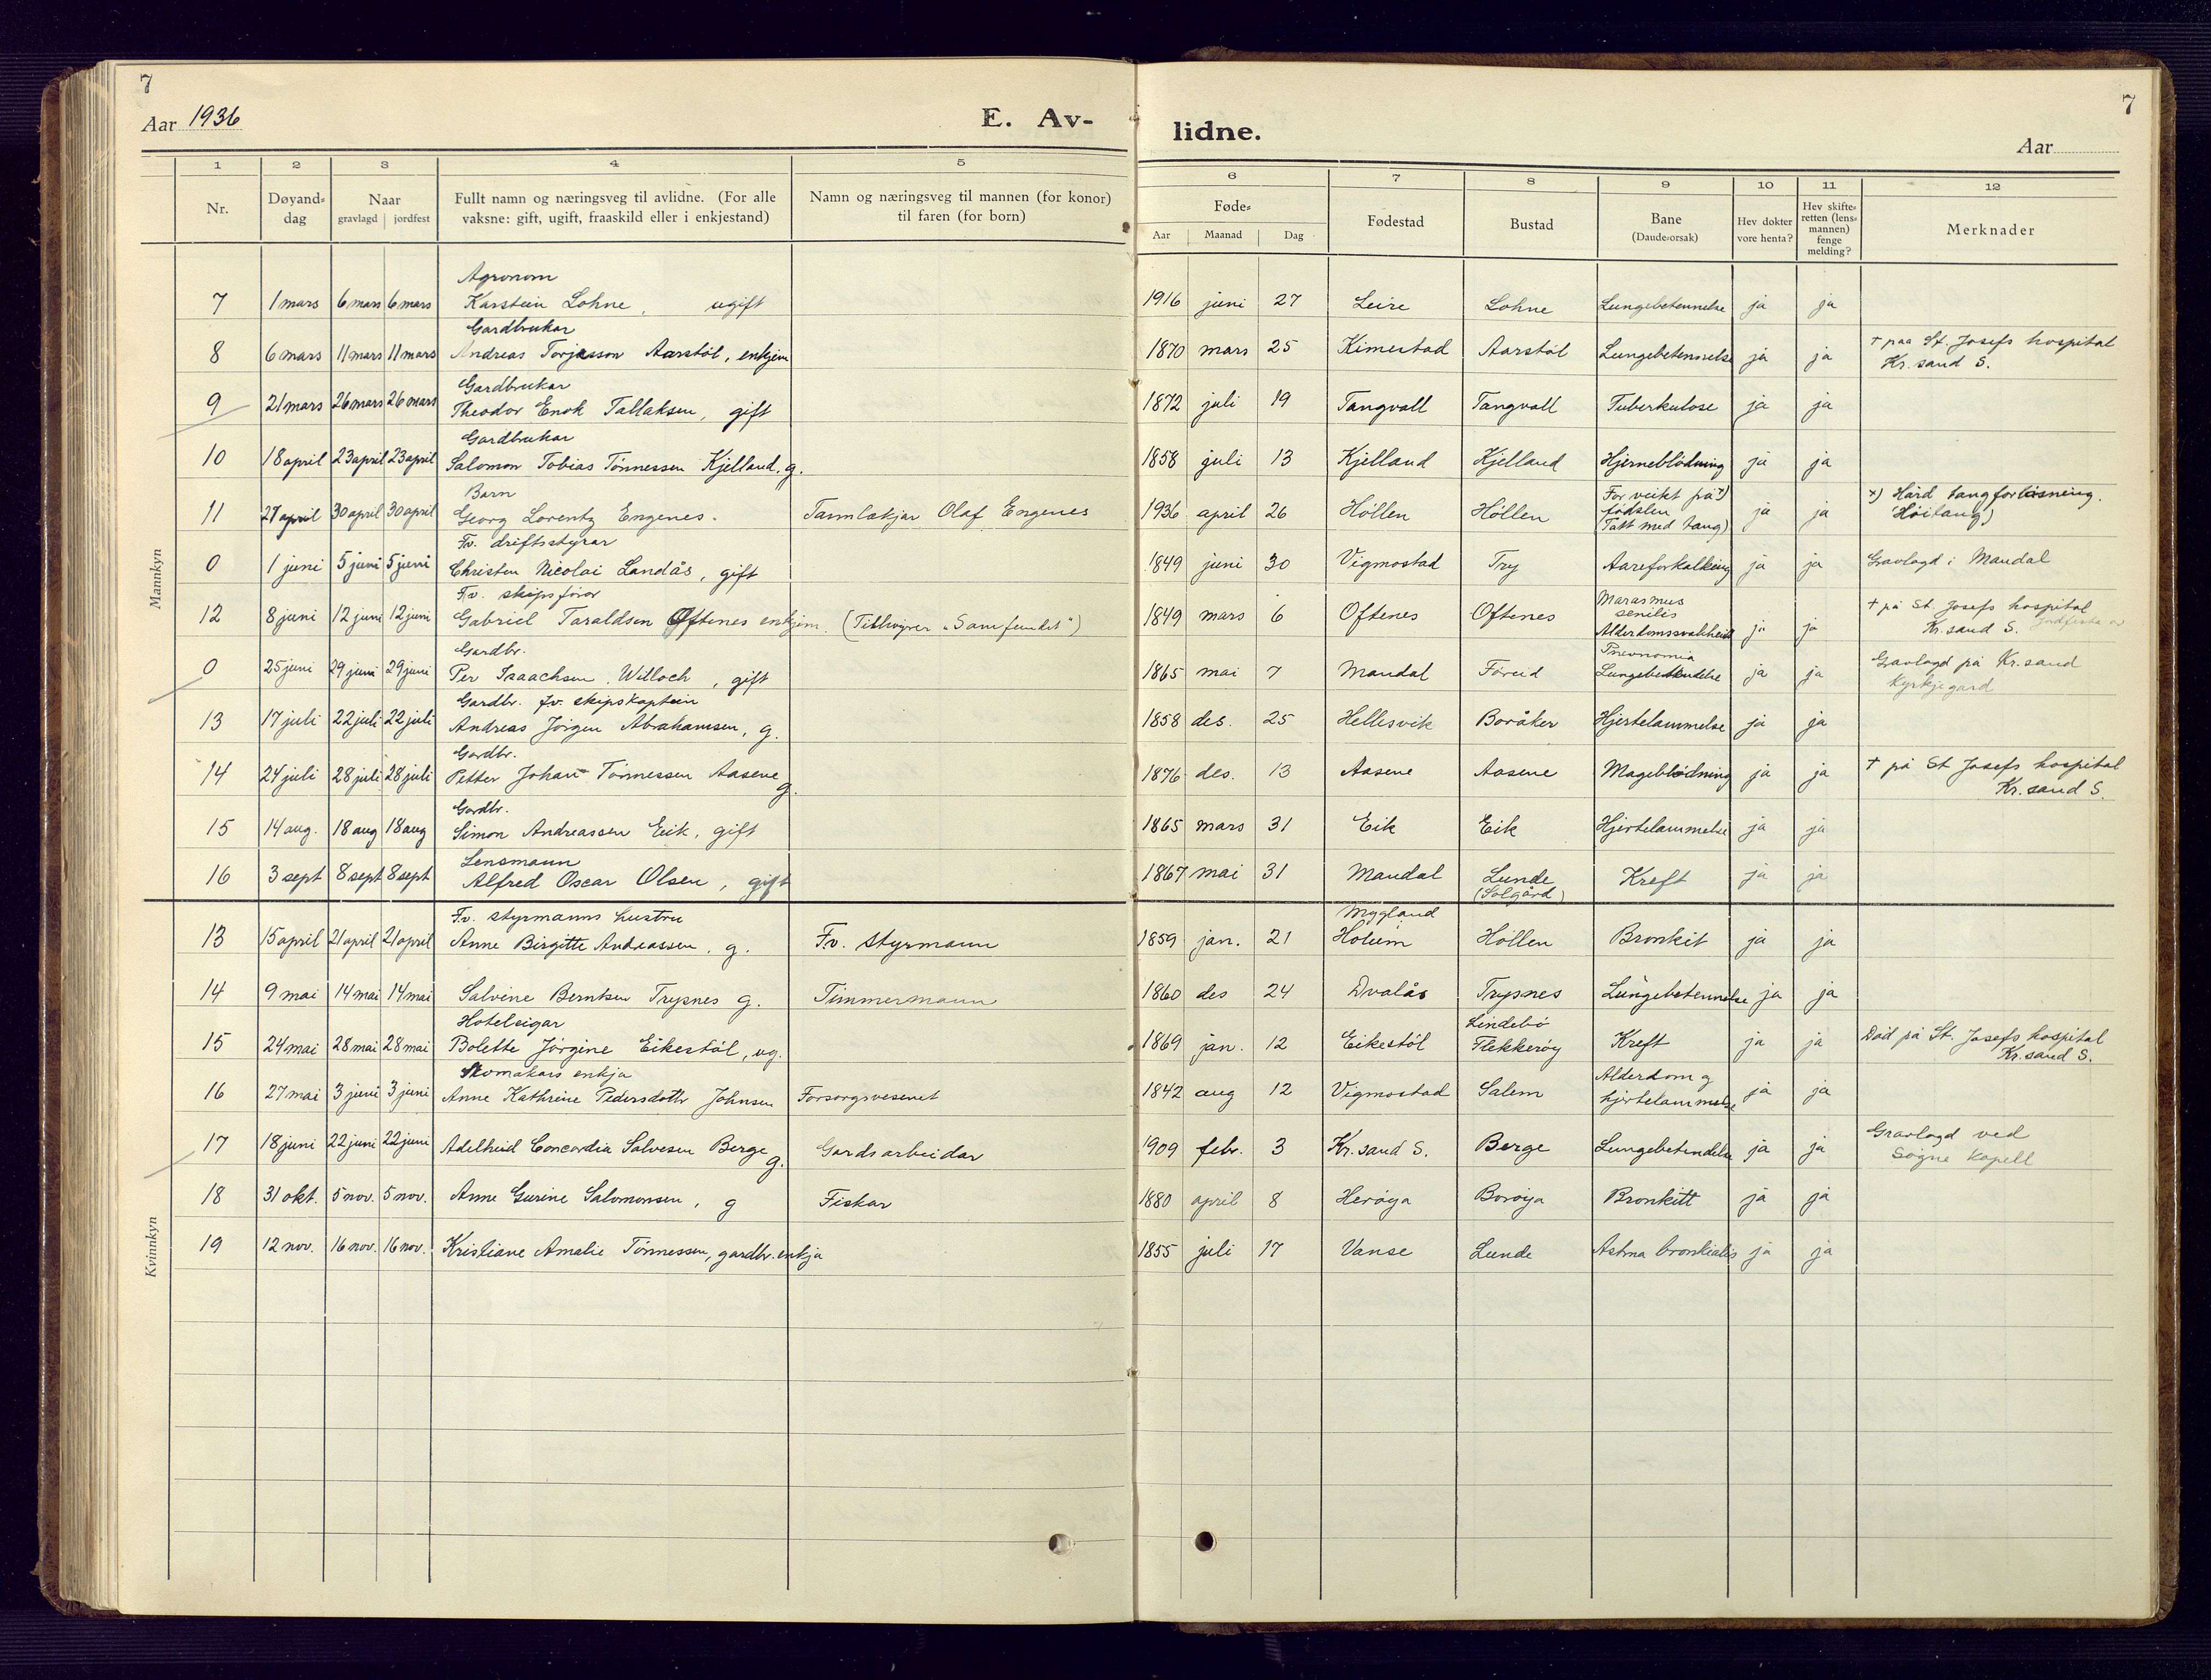 7
Aar 1936
E. Av-
lidne.
7
Aar
1 2 3 4 5 6 7 8 9 10 11 12
Nr.
Døyand-
dag
Naar
gravlagd jordfest
Fullt namn og næringsveg til avlidne. (For alle
vaksne: gift, ugift, fraaskild eller i enkjestand)
Namn og næringsveg til mannen (for konor)
til faren (for born)
Føde-
Aar Maanad Dag
Fødestad
Bustad
Bane
(Daude-orsak)
Hev dokter
vore henta?
Hev skifte-
retten (lens-
mannen)
fenge
melding?
Merknader
Mannkyn
Agronom
7 1 mars 6 mars 6 mars Karstein Lohne, ugift 1916 juni 27 Leire Lohne Lungebetennelse ja ja
Gardbrukar
8 6 mars 11 mars 11 mars Andreas Torjusson Aarstöl, enkjem 1870 mars 25 Kimestad Aarstöl Lungebetennelse ja ja † paa St. Josefs hospital
Kr. sand S.
Gardbrukar
9 21 mars 26 mars 26 mars Theodor Enok Tallaksen, gift 1872 juli 19 Tangvall Tangvall Tuberkulose ja ja
Gardbrukar
10 18 april 23 april 23 april Salomon Tobias Tönnessen Kjelland, g. 1858 juli 13 Kjelland Kjelland Hjerneblödning ja ja
Barn
11 27 april 30 april 30 april Georg Lorentz Engenes. Tannlækjar Olaf Engenes 1936 april 26 Höllen Höllen For veikt på x)
födslen
(Tatt med tang) ja ja x) Hård tangforlösning.
(Höitang)
Fv. driftsstyrar
0 1 juni 5 juni 5 juni Christen Nicolai Landås, gift 1849 juni 30 Vigmostad Try Aareforkalking ja ja Gravlagd i Mandal
Fv. skipsförar
12 8 juni 12 juni 12 juni Gabriel Taraldsen Øftenes enkjem. (Tilhøyrer "Samfundet") 1849 mars 6 Oftenes Oftenes Marasmus
senilis
Alderdomssvakheit ja ja † på St. Josefs hospital
Kr. sand S.
Gardbr.
0 25 juni 29 juni 29 juni Per Isaachsen Willoch, gift 1865 mai 7 Mandal Föreid Pnevnomia
Lungebetendelse ja ja Gravlagd på Kr.sand
Kyrkjegard
Gardbr. fv. skipskaptein
13 17 juli 22 juli 22 juli Andreas Jörgen Abrahamsen, g. 1858 des. 25 Hellesvik Boråker Hjertelammelse ja ja
Gardbr.
14 24 juli 28 juli 28 juli Petter Johan Tönnessen Aasene g. 1876 des. 13 Aasene Aasene Mageblödning ja ja † på St Josefs hospital
Kr. sand S.
Gardbr.
15 14 aug. 18 aug 18 aug Simon Andreassen Eik, gift 1865 mars 31 Eik Eik Hjertelammelse ja ja
Lensmann
16 3 sept 8 sept 8 sept Alfred Oscar Olsen, gift 1867 mai 31 Mandal Lunde
(Solgård) Kreft ja ja
Kvinnkyn
Fv. styrmanns hustru
13 15 april 21 april 21 april Anne Birgitte Andreassen, g. Fv. styrmann 1859 jan. 21 Mygland
Holum Höllen Bronkit ja ja
14 9 mai 14 mai 14 mai Salvine Berntsen Trysnes g. Timmermann 1860 des 24 Dvalås Trysnes Lungebetennelse ja ja
Hoteleigar
15 24 mai 28 mai 28 mai Bolette Jörgine Eikestöl, ug. 1869 jan. 12 Eikestöl Lindebö
Flekkeröy Kreft ja ja Död på St. Josefs hospital
Kr. sand S.
Skomakars enkja
16 27 mai 3 juni 3 juni Anne Kathrine Pedersdottr Johnsen Forsorgsvesenet 1842 aug 12 Vigmostad Salem Alderdom og
hjertelammelse ja ja
17 18 juni 22 juni 22 juni Adelheid Concordia Salvesen Berge g. Gardsarbeidar 1909 febr. 3 Kr. sand S. Berge Lungebetendelse ja ja Gravlagd ved
Sögne kapell
18 31 okt. 5 nov. 5 nov. Anne Gurine Salomonsen, g Fiskar 1880 april 8 Heröya Boröya Bronkitt ja ja
19 12 nov. 16 nov. 16 nov. Kristiane Amalie Tönnessen, gardbr. enkja 1855 juli 17 Vanse Lunde Astma bronkialis ja ja